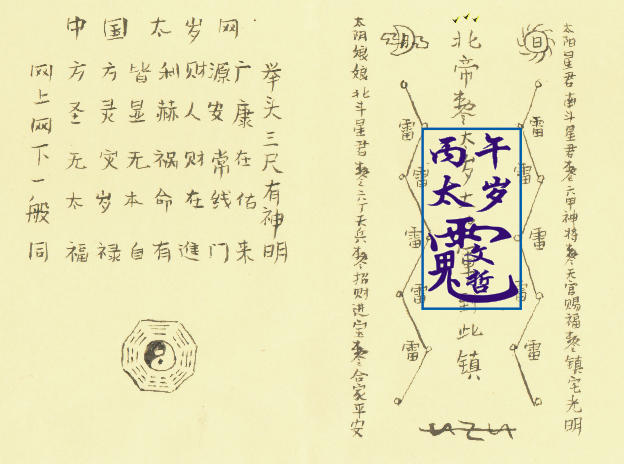 中国太岁网
举头三尺有神明
方方皆利财源广
圣灵显赫人安康
无灾无祸财常在
太岁本命在线估
福禄自有進门来
网上网下一般同
太阳星君南斗星君敕六甲神将敕天官赐福敕镇宅光明
雷
雷
雷
雷
北帝敕太岁
到此镇
丙午
太岁
文哲
雷
雷
雷
雷
太阴娘娘北斗星君敕六丁天兵敕招财进宝敕合家平安